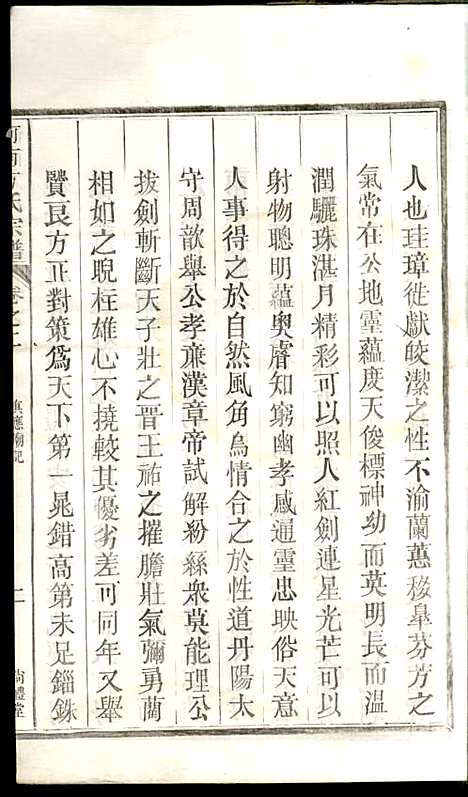 人也珪璋徙獻皎潔之性不渝蘭蕙移臯芬芳之
氣常在公地靈蘊度天俊標神幼而英明長而温
潤驪珠湛月精彩可以照人紅劍連星光芒可以
射物聰明蘊奥睿知窮幽孝感通靈忠映俗天意
人事得之於自然風角烏情合之於性道丹陽太
守周歆舉公孝廉漢章帝試解紛絲衆莫能理公
拔劍斬斷天子壯之晋王祐之摧膽壯氣彌勇藺
相如之睨柱雄心不撓較其優劣差可同年又舉
賢良方正對策爲天下第一晁錯高第未足錙銖
河南方氏宗譜 卷之 真應廟記 二 尚禮堂